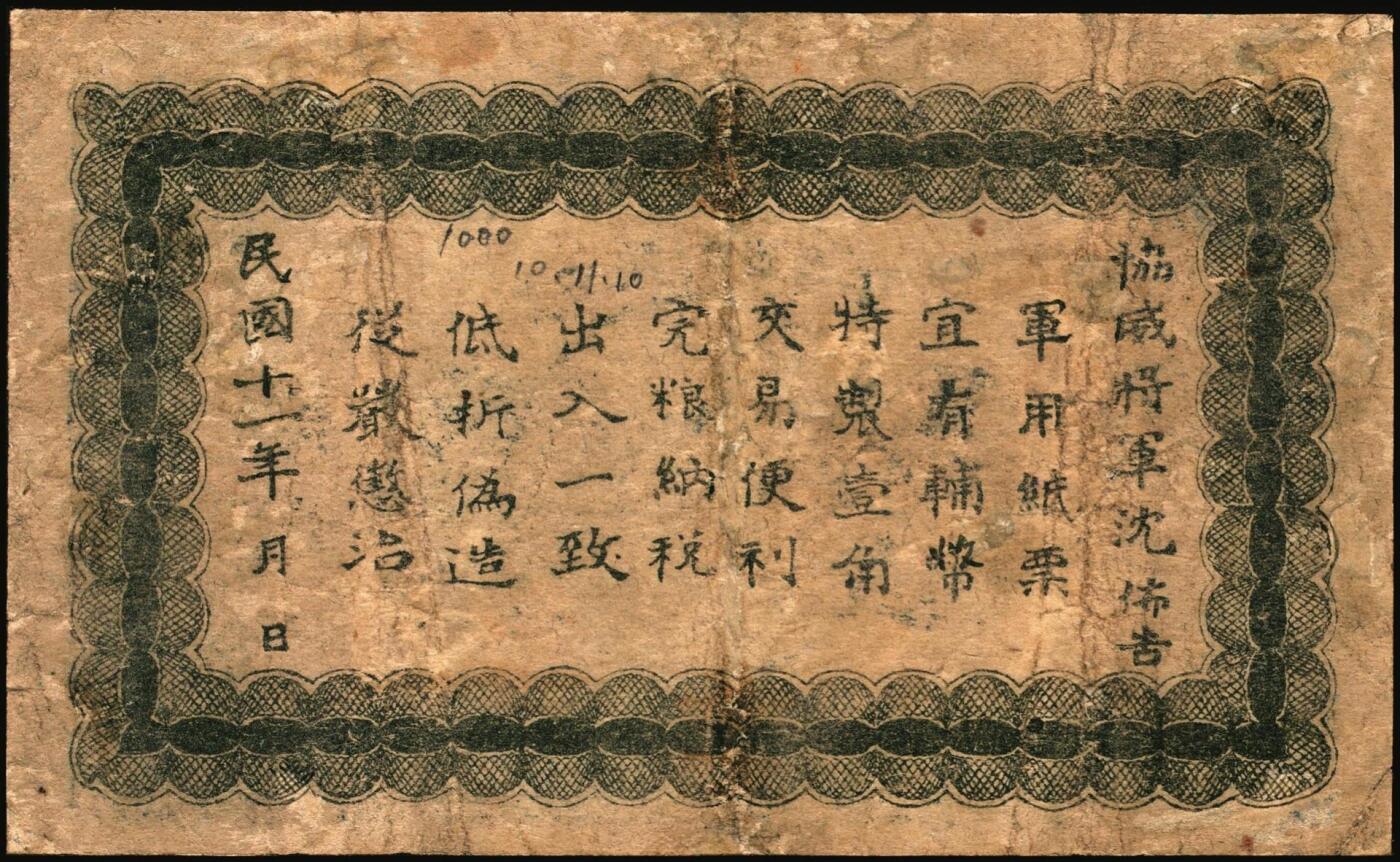 協威將軍沈佈告
軍用紙票
宜有輔幣
特製壹角
交易便利
完粮納稅
出入一致
低折偽造
從嚴懲治
民國十一年 月 日
1000
10.11.10